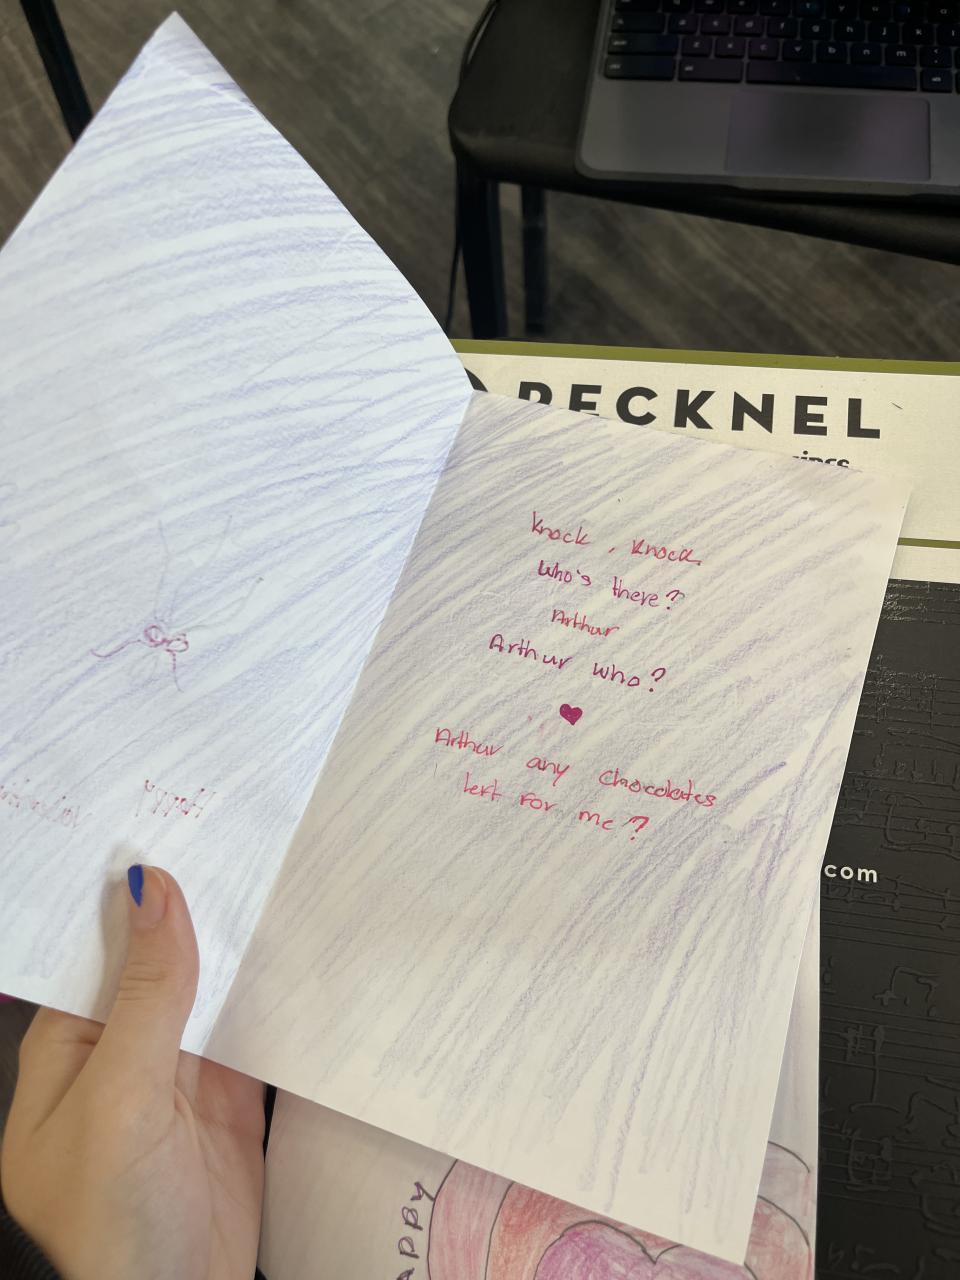 PECKNEL
Knock, Knock,
Who's there?
Arthur
Arthur who?
Arthur any chocolates
left for me?
.com
happy